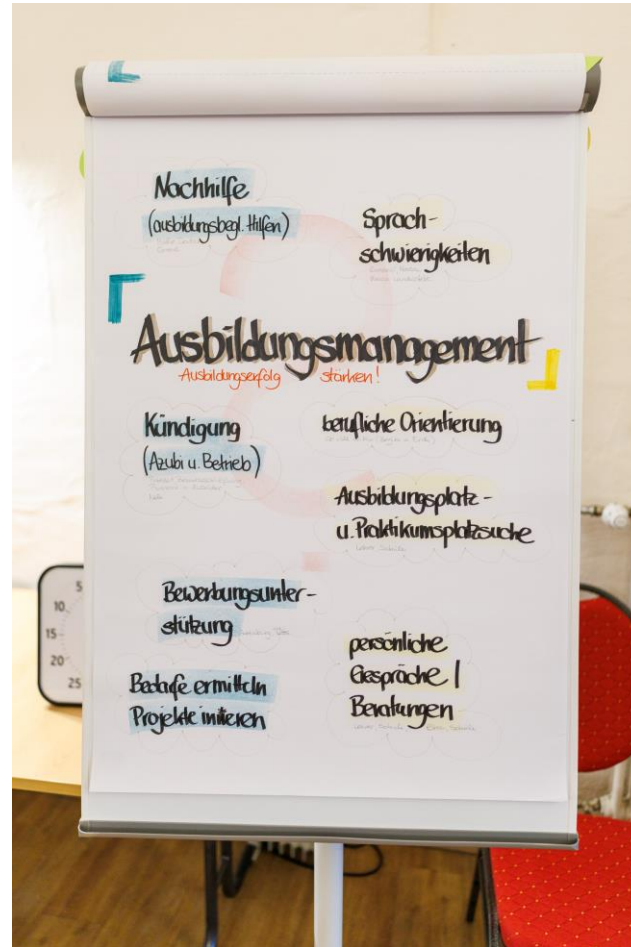 Nachhilfe
(ausbildungsbegl. Hilfen)
Sprach-
schwierigkeiten
Ausbildungsmanagement
Ausbildungserfolg stärken!
Kündigung
(Azubi u. Betrieb)
berufliche Orientierung
Ausbildungsplatz-
u. Praktikumsplatzsuche
Bewerbungsunter-
stützung
Bedarfe ermitteln
Projekte initiieren
persönliche
Gespräche /
Beratungen
5
10
15
20
25